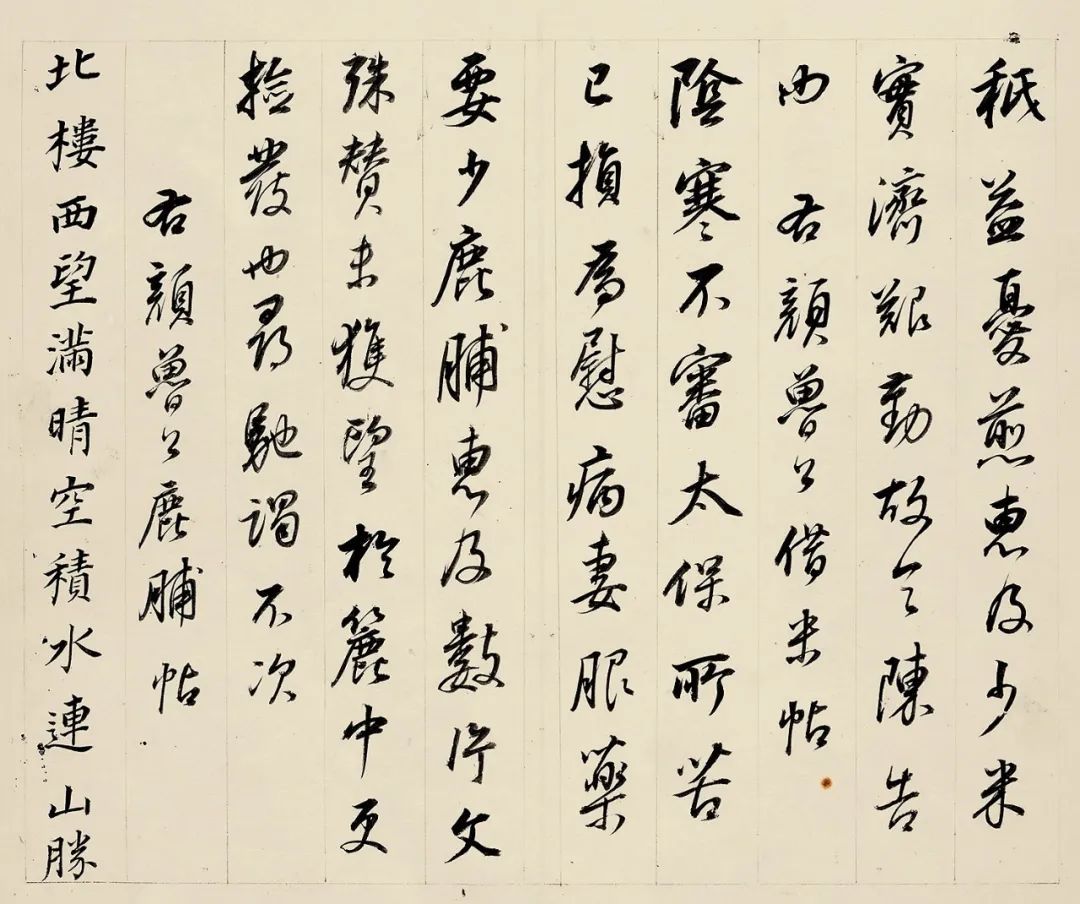 秖益憂煎惠及少米
實濟艱勤故令陳告
內 右顏魯公借米帖
陰寒不審太保所苦
已損為慰病妻服藥
要少鹿脯惠及數片文
殊贊未獲望於簏中更
撿發也尋馳謁不次
右顏魯公鹿脯帖
北樓西望滿晴空積水連山勝